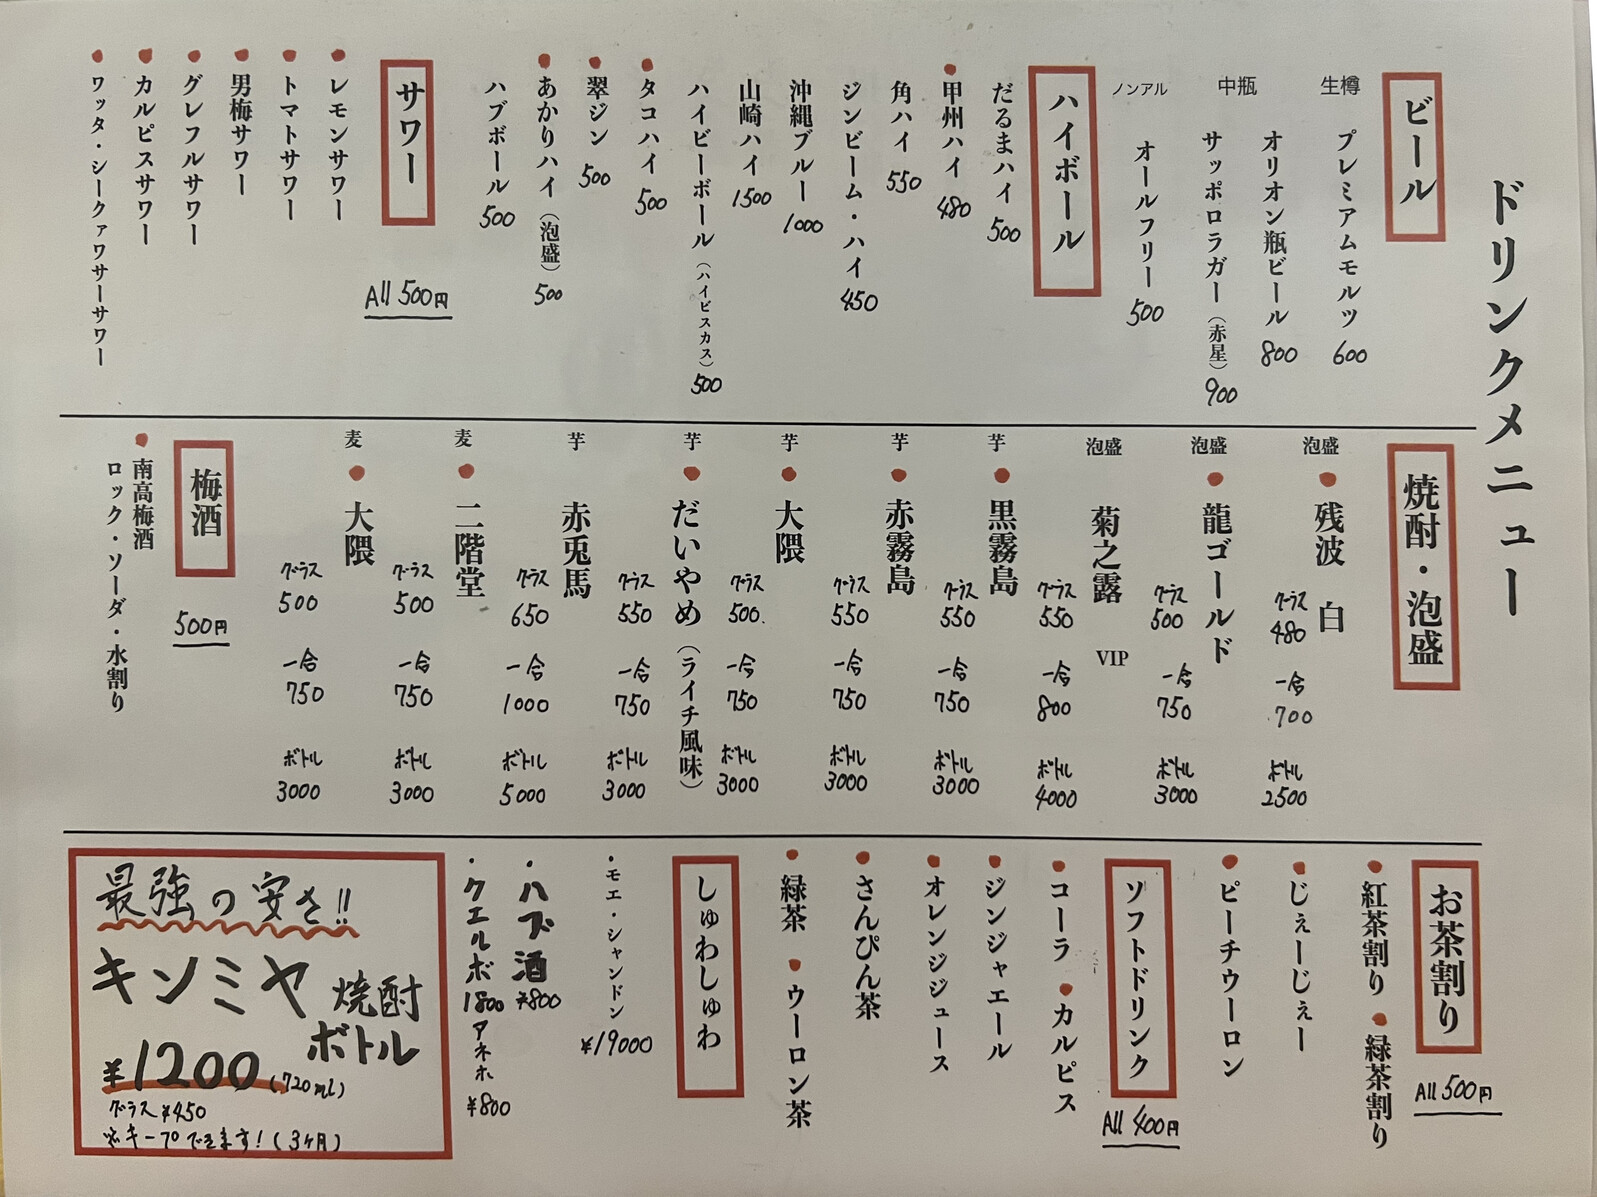 ドリンクメニュー
ビール
生樽 プレミアムモルツ 600
オリオン瓶ビール 800
中瓶 サッポロラガー（赤星） 900
ノンアル オールフリー 500
ハイボール
だるまハイ 500
甲州ハイ 480
角ハイ 550
ジンビーム・ハイ 450
沖縄ブルー 1000
山崎ハイ 1500
ハイビーボール（ハイビスカス） 500
タコハイ 500
翠ジン 500
あかりハイ（泡盛） 500
ハブボール 500
サワー
All 500円
レモンサワー
トマトサワー
男梅サワー
グレフルサワー
カルピスサワー
ワッタ・シークァワサーサワー
焼酎・泡盛
泡盛 残波 白 グラス 480 一合 700 ボトル 2500
泡盛 龍ゴールド グラス 500 一合 750 ボトル 3000
泡盛 菊之露 VIP グラス 550 一合 800 ボトル 4000
芋 黒霧島 グラス 550 一合 750 ボトル 3000
芋 赤霧島 グラス 550 一合 750 ボトル 3000
芋 大隈 グラス 500. 一合 750 ボトル 3000
芋 だいやめ（ライチ風味） グラス 550 一合 750 ボトル 3000
芋 赤兎馬 グラス 650 一合 1000 ボトル 5000
麦 二階堂 グラス 500 一合 750 ボトル 3000
麦 大隈 グラス 500 一合 750 ボトル 3000
梅酒
500円
南高梅酒
ロック・ソーダ・水割り
お茶割り
All 500円
紅茶割り 緑茶割り
じぇーじぇー
ピーチウーロン
ソフトドリンク
All 400円
コーラ カルピス
ジンジャエール
オレンジジュース
さんぴん茶
緑茶 ウーロン茶
しゅわしゅわ
・モエ・シャンドン ¥19000
・ハブ酒 ¥800
・クエルボ1800アネホ ¥800
最強の安さ!!
キンミヤ焼酎
ボトル
¥1200(720ml)
グラス¥450
※キープできます!(3ヶ月)